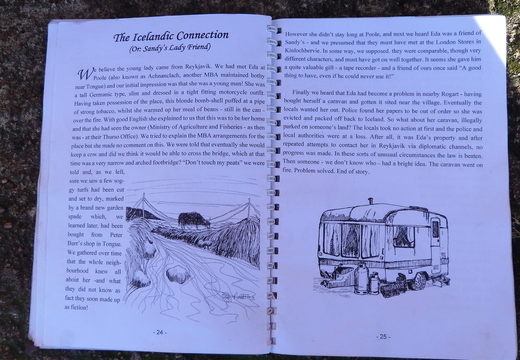 The Icelandic Connection
(Or: Sandy's Lady Friend)
We believe the young lady came from Reykjavik. We had met Eda at
Poole (also known as Achnanclach, another MBA maintained bothy
near Tongue) and our initial impression was that she was a young man! She was
a tall Germanic type, slim and dressed in a tight fitting motorcycle outfit.
Having taken possession of the place, this blonde bomb-shell puffed at a pipe
of strong tobacco, whilst she warmed up her meal of beans - still in the can -
over the fire. With good English she explained to us that this was to be her home
and that she had seen the owner (Ministry of Agriculture and Fisheries - as then
was) at their Thurso Office). We tried to explain the MBA arrangements for the
place but she made no comment on this. We were told that eventually she would
keep a cow and did we think it would be able to cross the bridge, which at that
time was a very narrow and arched footbridge? "Don't touch my peats" we were
told and, as we left,
sure we saw a few sog-
gy turfs had been cut
and set to dry, marked
by a brand new garden
spade which, we
learned later, had been
bought from Peter
Burr's shop in Tongue.
We gathered over time
that the whole neigh-
bourhood knew all
about her -and what
they did not know as
fact they soon made up
as fiction!
- 24 -
However she didn't stay long at Poole, and next we heard Eda was a friend of
Sandy's - and we presumed that they must have met at the London Stores in
Kinlochbervie. In some way, we supposed, they were comparable, though very
different characters, and must have got on well together. It seems she gave him
a quite valuable gift - a tape recorder - and a friend of ours once said "A good
thing to have, even if he could never use it!"
Finally we heard that Eda had become a problem in nearby Rogart - having
bought herself a caravan and gotten it sited near the village. Eventually the
locals wanted her out. Police found her papers to be out of order so she was
evicted and packed off back to Iceland. So what about her caravan, illegally
parked on someone's land? The locals took no action at first and the police and
local authorities were at a loss. After all, it was Eda's property and after
repeated attempts to contact her in Reykjavik via diplomatic channels, no
progress was made. In these sorts of unusual circumstances the law is beaten.
Then someone - we don't know who - had a bright idea. The caravan went on
fire. Problem solved. End of story.
- 25 -